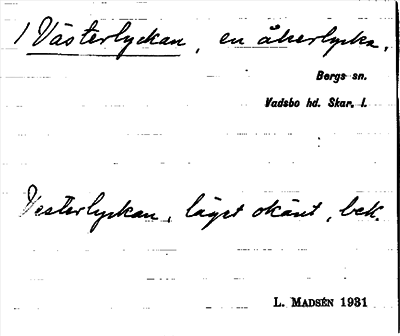 1 Västerlyckan, en åkerlycka.
Bergs sn.
Vadsbo hd. Skar. l.
Vesterlyckan, läget okänt, bek.
L. MADSÉN 1931